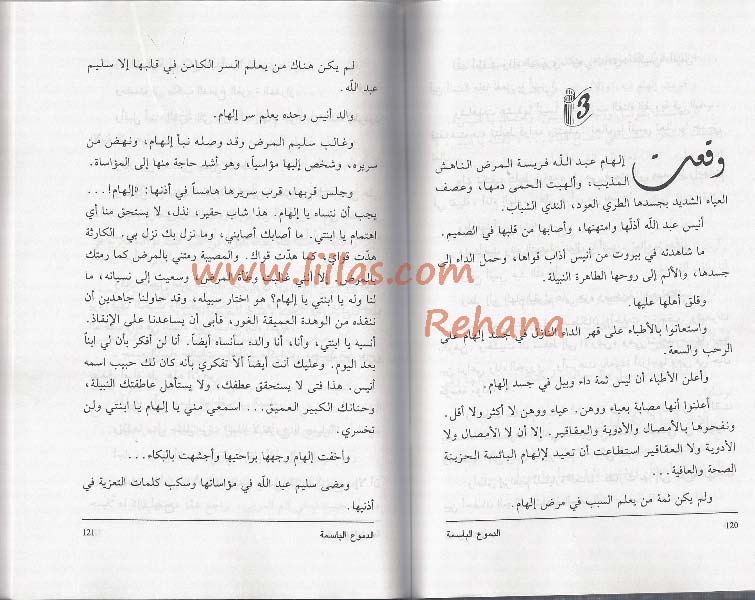 13
وقعت إلهام عبد اللّه فريسة المرض الناهش
المذيب، وألهبت الحمى دمها، وعصف
العياء الشديد بجسدها الطري العود، الندي الشباب.
أنيس عبد اللّه أذلّها وامتهنها، وأصابها من قلبها في الصميم.
ما شاهدته في بيروت من أنيس أذاب قواها، وحمل الداء إلى
جسدها، والألم إلى روحها الطاهرة النبيلة.
وقلق أهلها عليها.
واستعانوا بالأطباء على قهر الداء النازل في جسد إلهام على
الرحب والسعة.
وأعلن الأطباء أن ليس ثمة داء وبيل في جسد إلهام.
أعلنوا أنها مصابة بعياء ووهن. عياء ووهن لا أكثر ولا أقل.
ونفحوها بالأمصال والأدوية والعقاقير. إلا أن لا الأمصال ولا
الأدوية ولا العقاقير استطاعت أن تعيد لإلهام البائسة الحزينة
الصحة والعافية...
ولم يكن ثمة من يعلم السبب في مرض إلهام.
الدموع الباسمة
120
لم يكن هناك من يعلم السر الكامن في قلبها إلا سليم
عبد اللّه.
والد أنيس وحده يعلم سر إلهام.
وغالب سليم المرض وقد وصله نبأ إلهام، ونهض من
سريره، وشخص إليها مؤاسياً، وهو أشد حاجة منها إلى المؤاساة.
وجلس قربها، قرب سريرها هامساً في أذنها: «إلهام!...
يجب أن ننساه يا إلهام. هذا شاب حقير، نذل، لا يستحق منا أي
اهتمام يا ابنتي. ما أصابك أصابني، وما نزل بك نزل بي. الكارثة
هدّت قواي، كما هدّت قواك. والمصيبة رمتني بالمرض كما رمتك
بالمرض. إلا أنني غالبت وطأة المرض، وسعيت إلى نسيانه، ما
لنا وله يا ابنتي يا إلهام؟ هو اختار سبيله، وقد حاولنا جاهدين أن
ننقذه من الوهدة العميقة الغور، فأبى أن يساعدنا على الإنقاذ.
أنسيه يا ابنتي، وأنا، أنا والده سأنساه أيضاً. أنا لن أفكر بأن لي ابناً
بعد اليوم. وعليك أنت أيضاً ألاّ تفكري بأنه كان لك حبيب اسمه
أنيس. هذا فتى لا يستحقق عطفك، ولا يستأهل عاطفتك النبيلة،
وحنانك الكبير العميق... اسمعي مني يا إلهام يا ابنتي ولن
تخسري.
وأخفت إلهام وجهها براحتيها وأجشهت بالبكاء...
ومضى سليم عبد اللّه في مؤاساتها وسكب كلمات التعزية في
أذنيها.
الدموع الباسمة
121
www.liilas.com
Rehana